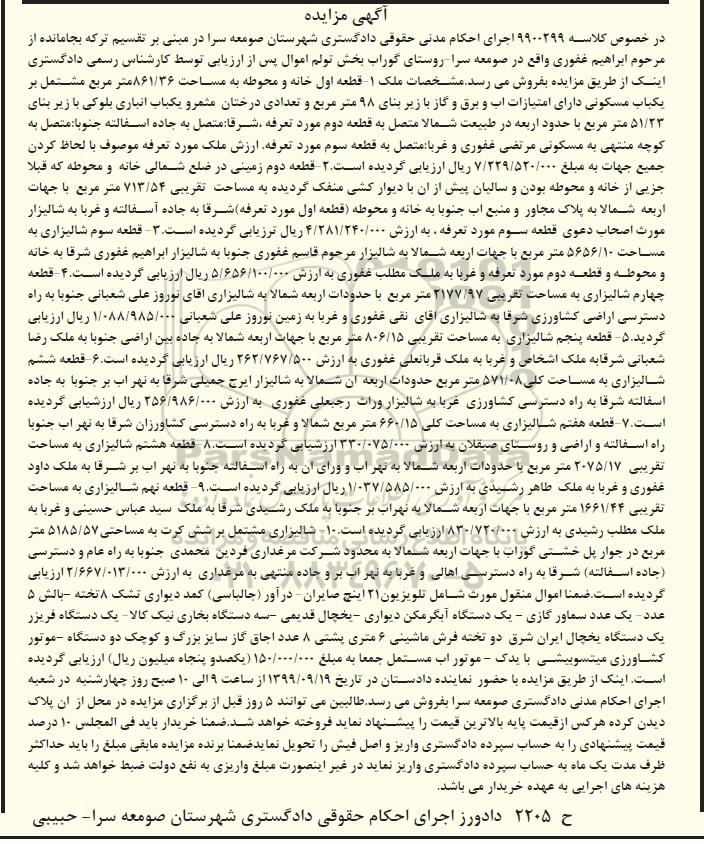 آگهی مزایده
در خصوص کلاسه ۹۹۰۰۲۹۹ اجرای احکام مدنی حقوقی دادگستری شهرستان صومعه سرا در مبنی بر تقسیم ترکه بجامانده از
مرحوم ابراهیم غفوری واقع در صومعه سرا-روستای گوراب بخش تولم اموال پس از ارزیابی توسط کارشناس رسمی دادگستری
اینک از طریق مزایده بفروش می رسد.مشخصات ملک ۱-قطعه اول خانه و محوطه به مساحت ۸۶۱/۳۶متر مربع مشتمل بر
یکباب مسکونی دارای امتیازات اب و برق و گاز با زیر بنای ۹۸ متر مربع و تعدادی درختان مثمرو یکباب انباری بلوکی با زیر بنای
۵۱/۲۳ متر مربع با حدود اربعه در طبیعت شمالا متصل به قطعه دوم مورد تعرفه ،شرقا:متصل به جاده اسفالته جنوبا:متصل به
کوچه منتهی به مسکونی مرتضی غفوری و غربا:متصل به قطعه سوم مورد تعرفه. ارزش ملک مورد تعرفه موصوف با لحاظ کردن
جمیع جهات به مبلغ ۷/۲۲۹/۵۲۰/۰۰۰ ریال ارزیابی گردیده است.۲-قطعه دوم زمینی در ضلع شمالی خانه و محوطه که قبلا
جزیی از خانه و محوطه بودن و سالیان پیش از ان با دیوار کشی منفک گردیده به مساحت تقریبی ۷۱۳/۵۴ متر مربع با جهات
اربعه شمالا به پلاک مجاور و منبع اب جنوبا به خانه و محوطه (قطعه اول مورد تعرفه)شرقا به جاده آسفالته و غربا به شالیزار
مورث اصحاب دعوی قطعه سوم مورد تعرفه ، به ارزش ۴/۲۸۱/۲۴۰/۰۰۰ ریال ترزیابی گردیده است.۳- قطعه سوم شالیزاری به
مساحت ۵۶۵۶/۱۰ متر مربع با جهات اربعه شمالا به شالیزار مرحوم قاسم غفوری جنوبا به شالیزار ابراهیم غفوری شرقا به خانه
و محوطه و قطعه دوم مورد تعرفه و غربا به ملک مطلب غفوری به ارزش ۵/۶۵۶/۱۰۰/۰۰۰ ریال ارزیابی گردیده است.۴-قطعه
چهارم شالیزاری به مساحت تقریبی ۲۱۷۷/۹۷ متر مربع با حدودات اربعه شمالا به شالیزاری اقای نوروز علی شعبانی جنوبا به راه
دسترسی اراضی کشاورزی شرقا به شالیزاری اقای نقی غفوری و غربا به زمین نوروز علی شعبانی ۱/۰۸۸/۹۸۵/۰۰۰ ریال ارزیابی
گردید.۵- قطعه پنجم شالیزاری به مساحت تقریبی ۸۰۶/۱۵ متر مربع با جهات اربعه شمالا به جاده بین اراضی جنوبا به ملک رضا
شعبانی شرقابه ملک اشخاص و غربا به ملک قربانعلی غفوری به ارزش ۲۶۲/۷۶۷/۵۰۰ ریال ارزیابی گردیده است.۶-قطعه ششم
شالیزاری به مساحت کلی۵۷۱/۰۸ متر مربع حدودات اربعه ان شمالا به شالیزار ایرج جمیلی شرقا به نهر اب بر جنوبا به جاده
اسفالته شرقا به راه دسترسی کشاورزی غربا به شالیزار وراث رجبعلی غفوری به ارزش ۲۵۶/۹۸۶/۰۰۰ ریال ارزشیابی گردیده
است.۷-قطعه هفتم شالیزاری به مساحت کلی ۶۶۰/۱۵ متر مربع شمالا و غربا به راه دسترسی کشاورزان شرقا به نهر اب جنوبا
راه اسفالته و اراضی و روستای صیقلان به ارزش ۳۳۰/۰۷۵/۰۰۰ ارزشیابی گردیده است.۸- قطعه هشتم شالیزاری به مساحت
تقریبی ۲۰۷۵/۱۷ متر مربع با حدودات اربعه شمالا به نهر اب و ورای ان به راه اسفالته جنوبا به نهر اب بر شرقا به ملک داود
غفوری و غربا به ملک طاهر رشیدی به ارزش ۱/۰۳۷/۵۸۵/۰۰۰ ریال ارزیابی گردیده است.۹- قطعه نهم شالیزاری به مساحت
تقریبی ۱۶۶۱/۴۴ متر مربع با جهات اربعه شمالا به نهراب بر جنوبا به ملک رشیدی شرقا به ملک سید عباس حسینی و غربا به
ملک مطلب رشیدی به ارزش ۸۳۰/۷۲۰/۰۰۰ ارزیابی گردیده است.۱۰- شالیزاری مشتمل بر شش کرت به مساحتی۵۱۸۵/۵۷ متر
مربع در جوار پل خشتی گوراب با جهات اربعه شمالا به محدود شرکت مرغداری فردین محمدی جنوبا به راه عام و دسترسی
(جاده اسفالته) شرقا به راه دسترسی اهالی و غربا به نهر اب بر و جاده منتهی به مرغداری به ارزش ۲/۶۶۷/۰۱۳/۰۰۰ ارزیابی
گردیده است.ضمنا اموال منقول مورث شامل تلویزیون۲۱ اینچ صایران- درآور (جالباسی) کمد دیواری تشک ۸تخته -بالش ۵
عدد- یک عدد سماور گازی - یک دستگاه آبگرمکن دیواری -یخچال قدیمی -سه دستگاه بخاری نیک کالا- یک دستگاه فریزر
یک دستگاه یخچال ایران شرق دو تخته فرش ماشینی ۶ متری پشتی ۸ عدد اجاق گاز سایز بزرگ و کوچک دو دستگاه -موتور
کشاورزی میتسوبیشی با یدک - موتور اب مستمل جمعا به مبلغ ۱۵۰/۰۰۰/۰۰۰ (یکصدو پنجاه میلیون ریال) ارزیابی گردیده
است. اینک از طریق مزایده با حضور نماینده دادستان در تاریخ ۱۳۹۹/۰۹/۱۹ از ساعت ۹ الی ۱۰ صبح روز چهارشنبه در شعبه
اجرای احکام مدنی دادگستری صومعه سرا بفروش می رسد.طالبین می توانند ۵ روز قبل از برگزاری مزایده در محل از ان پلاک
دیدن کرده هرکس ازقیمت پایه بالاترین قیمت را پیشنهاد نماید فروخته خواهد شد.ضمنا خریدار باید فی المجلس ۱۰ درصد
قیمت پیشنهادی را به حساب سپرده دادگستری واریز و اصل فیش را تحویل نمایدضمنا برنده مزایده مابقی مبلغ را باید حداکثر
ظرف مدت یک ماه به حساب سپرده دادگستری واریز نماید در غیر اینصورت مبلغ واریزی به نفع دولت ضبط خواهد شد و کلیه
هزینه های اجرایی به عهده خریدار می باشد.
ح ۲۲۰۵ دادورز اجرای احکام حقوقی دادگستری شهرستان صومعه سرا- حبیبی
ParsNamadData
۰۲۱-۸۸۳۴۹۶۷۰-۵